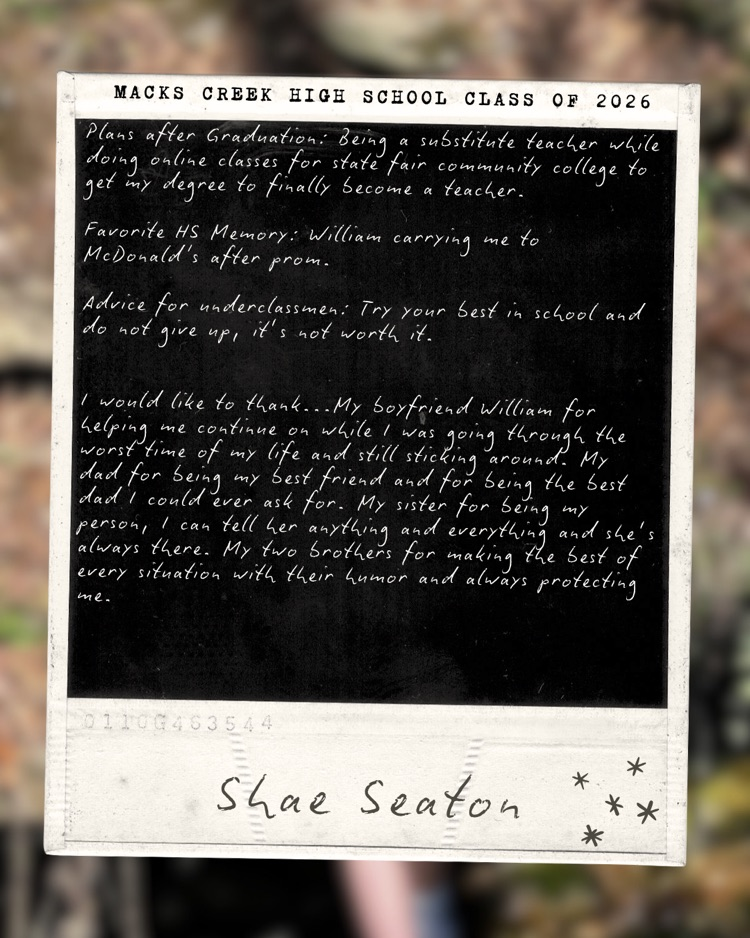 MACKS CREEK HIGH SCHOOL CLASS OF 2026
Plans after Graduation: Being a substitute teacher while
doing online classes for state fair community college to
get my degree to finally become a teacher.
Favorite HS Memory: William carrying me to
McDonald's after prom.
Advice for underclassmen: Try your best in school and
do not give up, it's not worth it.
I would like to thank...My boyfriend William for
helping me continue on while I was going through the
worst time of my life and still sticking around. My
dad for being my best friend and for being the best
dad I could ever ask for. My sister for being my
person, I can tell her anything and everything and she's
always there. My two brothers for making the best of
every situation with their humor and always protecting
me.
0110G463544
Shae Seaton